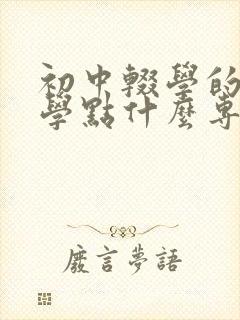 初中輟學的
學點什麼專
廢言夢語